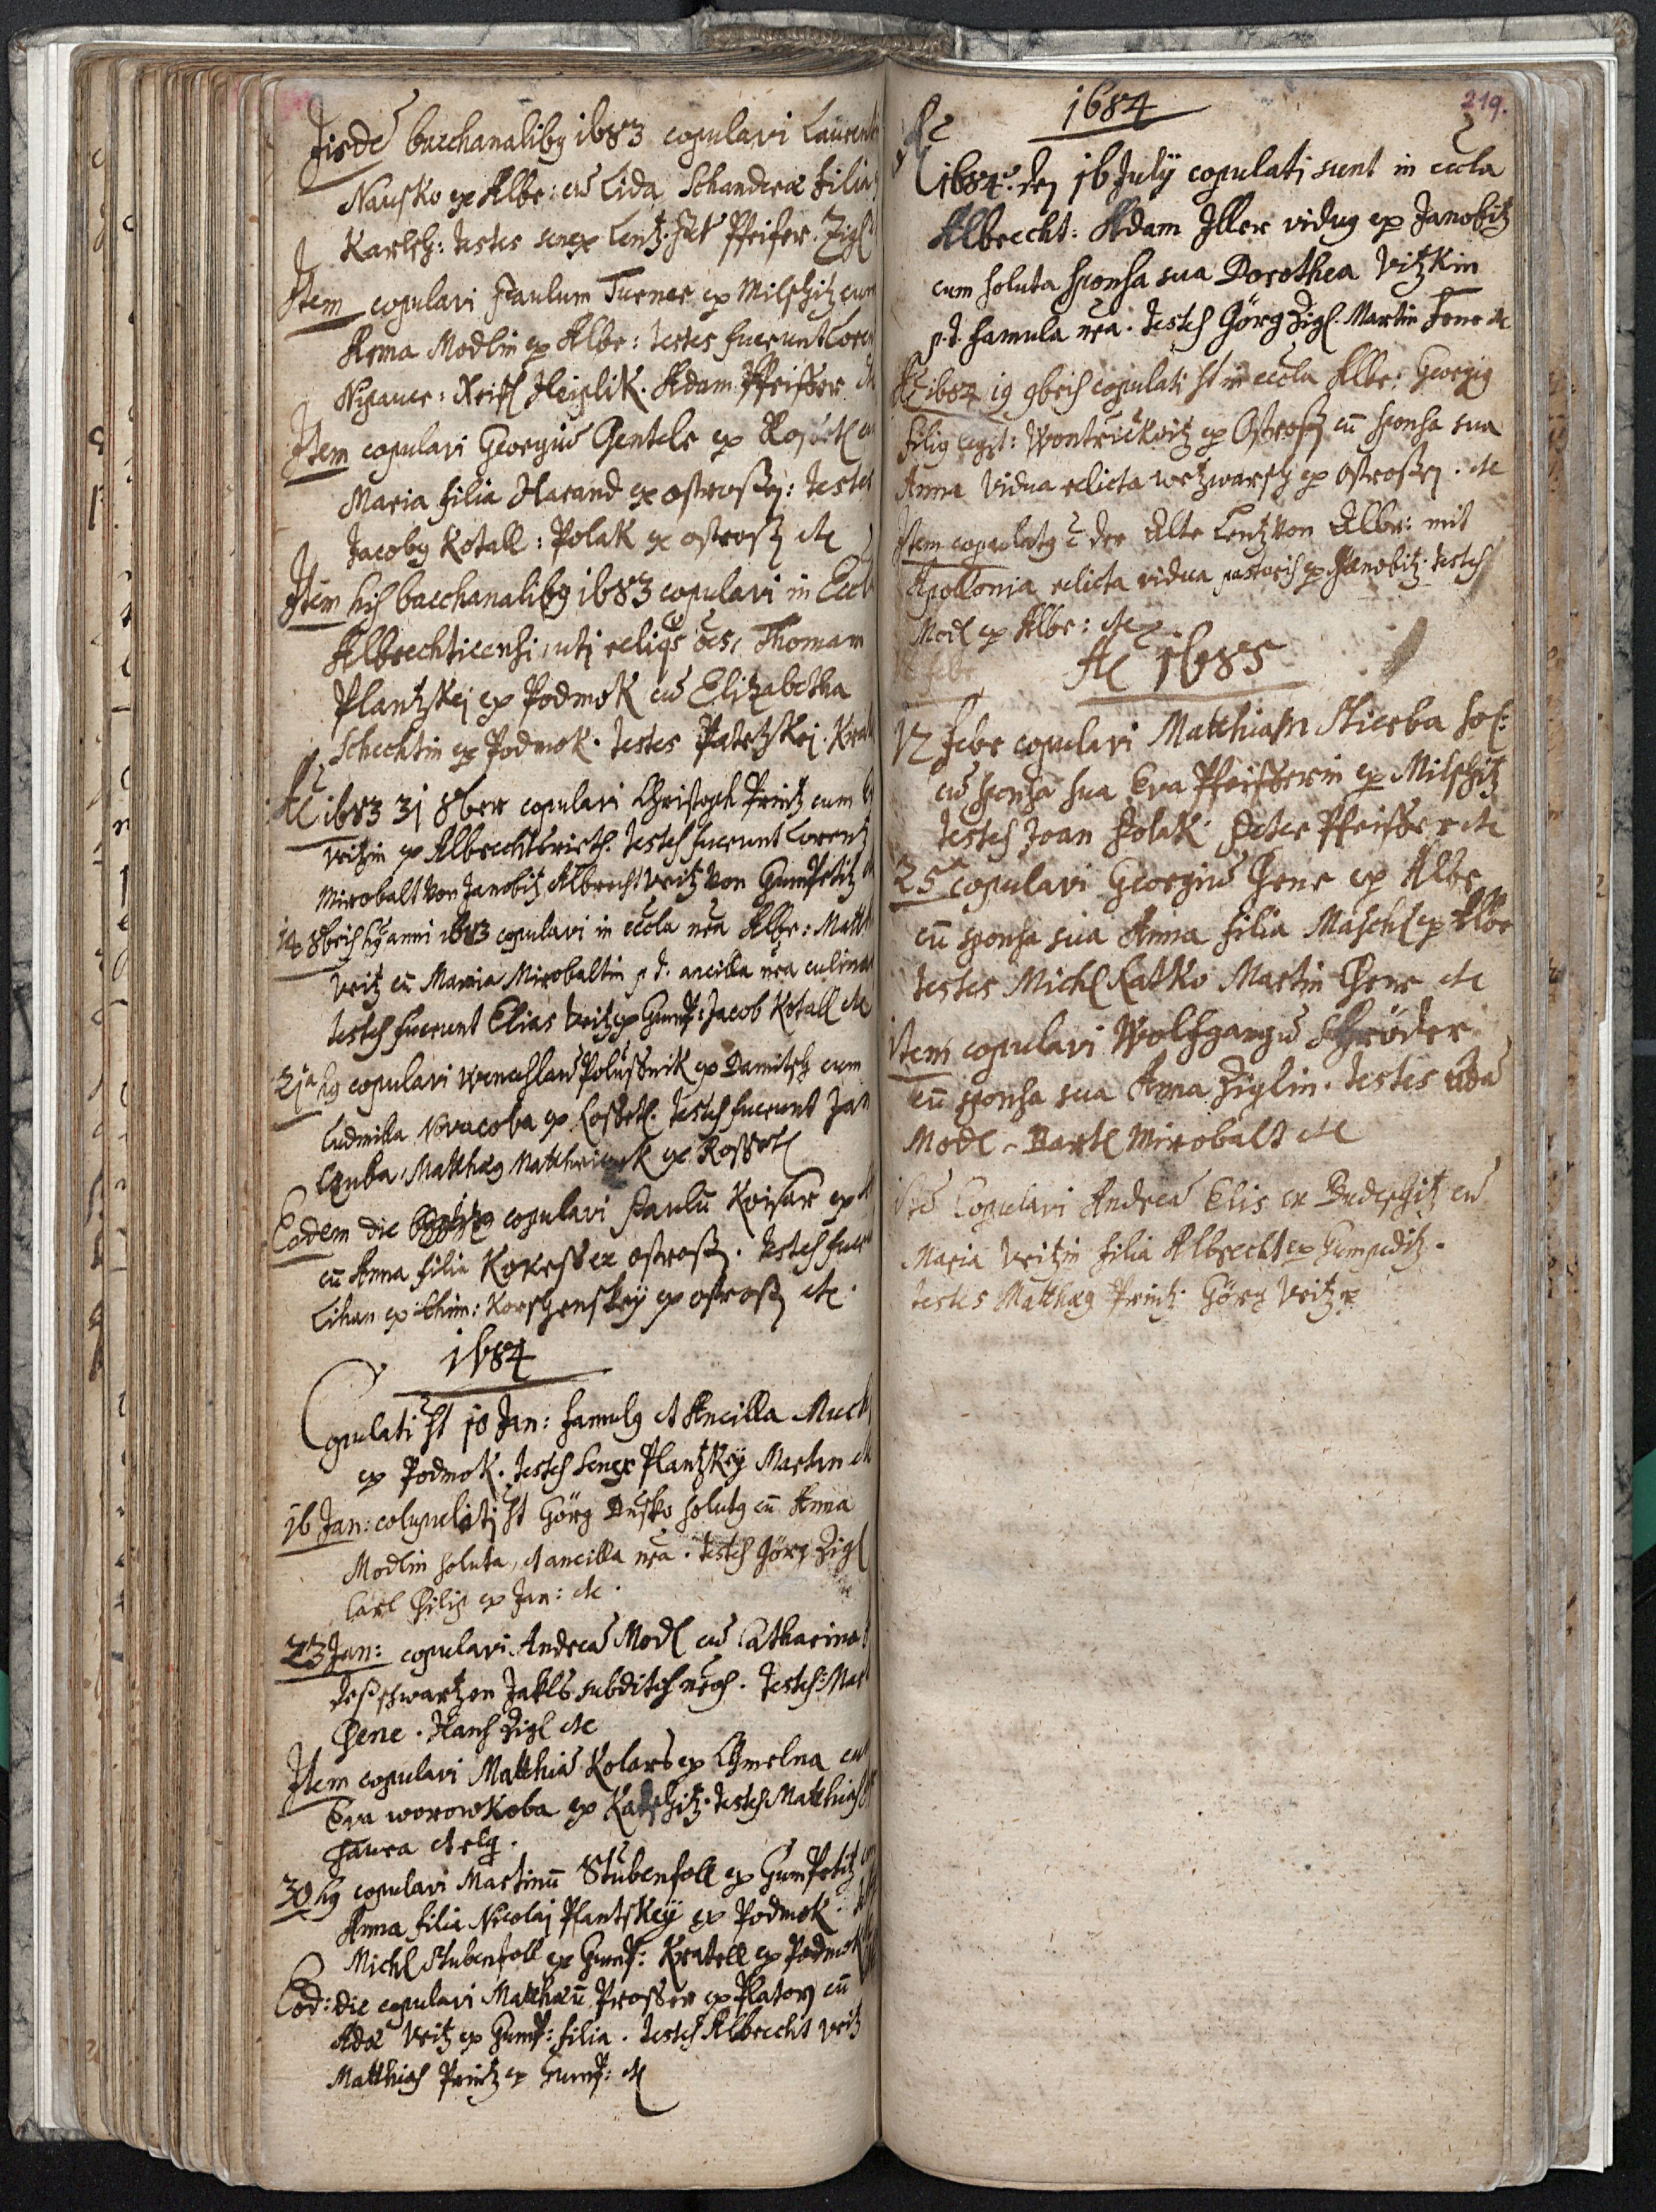 Iisdē bacchanalibꝰ 1683 copulavi Laurent
Nausko ex Albr: cū Lida Schandera filia
Karlsch: testes senex Lentz. Jak Pfeifer. Zigl
Item copulavi Paulum Turner ex Milschitz cum
Anna Modlin ex Albr: testes fuerunt Loren
Adam Pfeiffer etc
Item copulavi Georgiū Gentele ex
Maria filia Harand ex ostrossen: testes
Jacobꝰ Kotall: Polak ex ostross etc
Item his bacchanalibꝰ 1683 copulavi in Eccl
Albrechticensi, uti reliqs oēs, Thomam
Plantzkej ex Podmok cū Elizabetha
Schechtin ex Podmok. testes Kra
Aō 1683 31 8ber copulavi Christoph Printz cum
Veitzin ex testes fuerunt Lorentz
Mirobalt von Janobitz Albrecht Veitz von Gumpetitz
14 8bris hꝰ anni 1683 copulavi in eccla nra Albr: Matth
Veitz cū Maria Mirobaltin p.t. ancilla nra culina
testes fuerunt Elias Veitz ex Gump: Jacob Kotall etc
21 hꝰ copulavi Wenceslaū Polussnik ex Damitsch cum
Ludmilla Novacoba ex testes fuerunt Jan
Matthæꝰ ex Rossetl
Eodem die copulavi Paulū Koisar ex
cū Anna filia Kokess ex ostross. testes fuer
Lihan ex Korschenskÿ ex ostross etc.
1684
Copulati st 10 Jan: famulꝰ et Ancilla
ex Podmok. testes senex Plantzkeÿ Martin etc
16 Jan: st Görg Dusko solutꝰ cū Anna
Modlin soluta, et ancilla nra. testes Görg Zigl
Carl ex Jan: etc.
23 Jan: copulavi Andreā Modl cū Catharina
deß schwartzen Jakls subditis nris. testes: Mar
Hans Zigl etc
Item copulavi Matthiā Kolars ex Chmelna cū
Eva Worowkoba ex testes Matthias
30 hꝰ copulavi Martinū Stubenfoll ex Gumpetitz
Anna filia Nicolaj Plantskeÿ ex Podmok.
Michl Stubenfoll ex Gump: Kratell ex Podmok
Eod: die copulavi Matthæū Prosser ex Platorn cū
Adæ Veitz ex Gump: filia. testes Albrecht Veitz
Matthias Printz ex Gump: etc
219.
Aō 1684
1684. den 16 Julÿ copulati sunt in eccla
Albrecht: Adam Iller viduꝰ ex Janobitz
cum soluta sponsa sua Dorothea Vitzkin
p.t. famula nra. testes Görg Zigl. Martin etc
Aō 1684 19 9bris copulati st in eccla Albr: Georgiꝰ
filiꝰ legit: Wontruckoitz ex Ostross cū sponsa sua
Anna vidua relicta ex ostrossen. etc
Item copulatꝰ ē der Alte Lentz von Albr: mit
Apollonia relicta vidua pastoris ex Janobitz. testes
Modl ex Albr: etc
Aō 1685
12 Febr copulavi Matthiam Stierba sol:
cū sponsa sua Eva Pfeifferin ex Milschitz
testes Joan Polak. Peter Pfeiffer etc
25 copulavi Georgiū ex Albr
cū sponsa sua Anna filia Maschl ex Albr
testes Michl Latko Martin etc
item copulavi Wolfgangū Schröder
cū sponsa sua Anna Ziglin. testes Adā
Modl. Bartl Mirobalt etc
itē Copulavi Andreā Elis ex cū
Maria Veitzin filia Albrecht ex Gumpeditz.
testes Matthæꝰ Printz. Görg Veitz